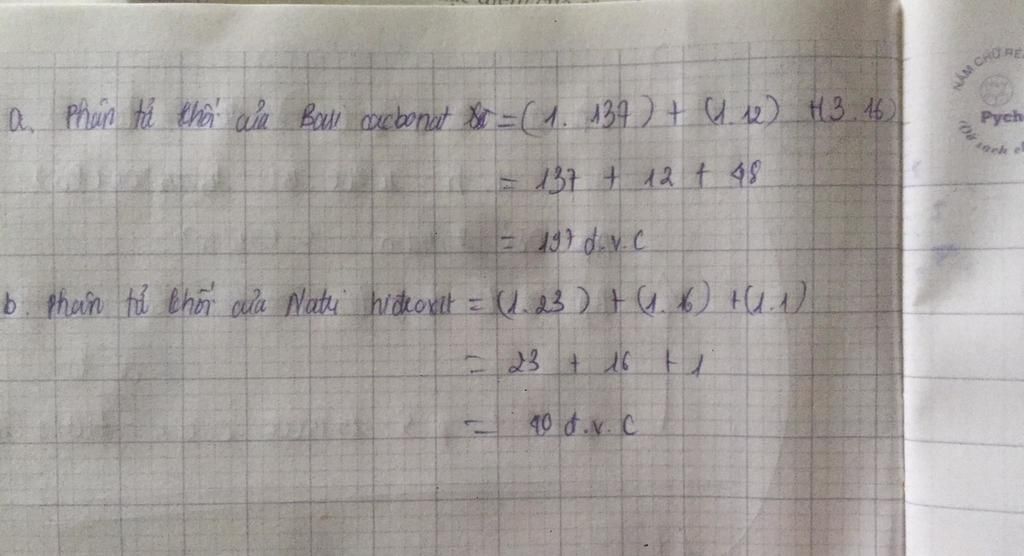 a. Phân tử khối của Bari cacbonat = (1. 137) + (1.12) +(3.16)
= 137 + 12 + 48
= 197 đ.v.C
b. Phân tử khối của Natri hidroxit = (1.23) + (1.16) +(1.1)
= 23 + 16 + 1
= 40 đ.v.C
NĂM CHỮ RÈ
Pych